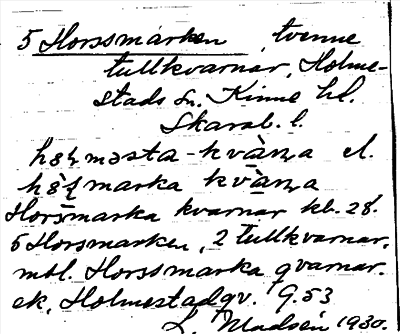 5 Horssmarken, tvenne
tullkvarnar, Holme-
stads sn. Kinne hd.
Skarab. l.
marka
Horsmarka kvarnar kb. 28.
6 Horsmarken, 2 tullkvarnar.
mbl. Horssmarka qvarnar.
ek, Holmestad gv. 9.53
L. Madsén 1930.